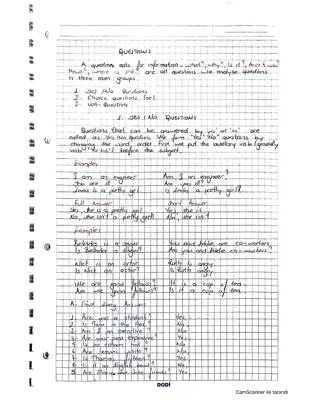 QUESTIONS
A question asks for information. "what", "why", "Is it",
are all questions. We analyse questions
in three main groups.
1- Yes / No Questions
2- Choice questions (or)
3- Wh- Question
1. YES / NO QUESTIONS
Questions that can be answered by "yes" or "no" are
called as Yes/No questions. We form "Yes" "No" questions by
changing the word order. First we put the auxiliary verb (generally
verb "to be") before the subject.
Examples
I am an engineer. Am I an engineer?
You are it. Are you it?
Linda is a pretty girl. Is Linda a pretty girl?
Full Answer Short Answer
Yes, she is a pretty girl. Yes, she is.
No, she isn't a pretty girl. No, she isn't.
Examples
Belinda is a singer. You and are co-workers.
Is Belinda a singer? Are you and co-workers?
Nick is an actor. Ruth is angry.
Is Nick an actor? Is Ruth angry?
We are good fellows. It is a cup of tea.
Are we good fellows? Is it a cup of tea?
A- Long Answers
1. Are you a student? Yes,
2. Is Tom in the No,
3. Am I an executive? No,
4. Are your expensive? Yes,
5. Is No,
6. Are lemons white? No,
7. Is Yes,
8. Is it an English No,
9. Are and friends? Yes,
CamScanner ile tarandı